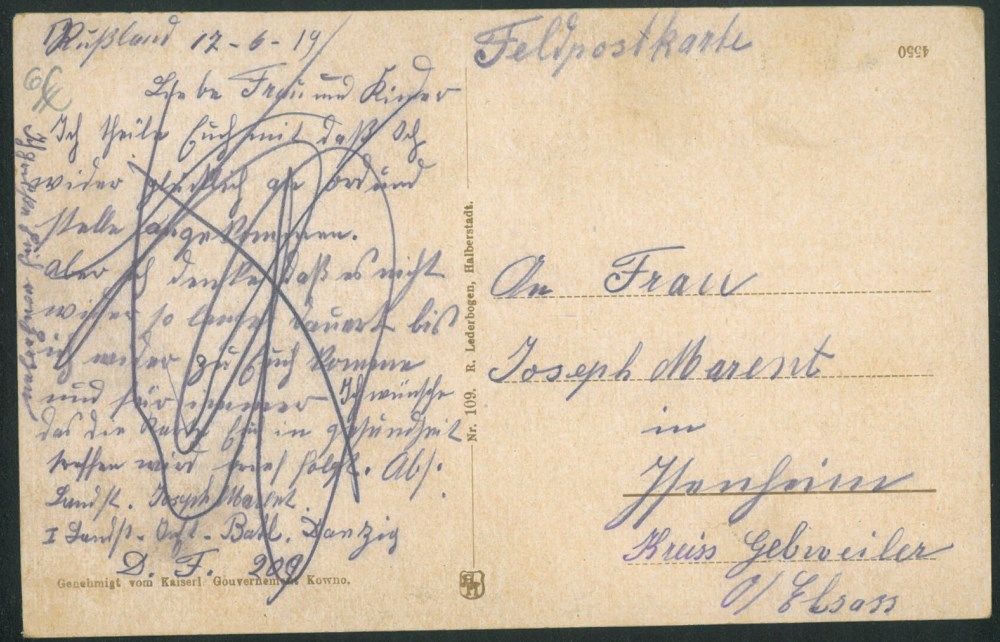 Rußland 12-6-19
Feldpostkarte
4550
Liebe Frau und Kinder
Ich theile Euch mit daß Ich
wider glücklich an ord und
stelle angekommen.
aber ich denke daß es nicht
wider so lange dauert bis
ich wider zu Euch komme
und für immer Ich wünsche
das die Karte Euch in gesundheit
treffen wird brief folgt. Abs.
Landst. Joseph Marent
I Landst. Batl. Danzig
D. F. 209
Genehmigt vom Kaiserl Gouvernement Kowno.
Nr. 109. R. Lederbogen, Halberstadt.
An Frau
Joseph Marent
in
Isenheim
Kreiss Gebweiler
O/ Elsass